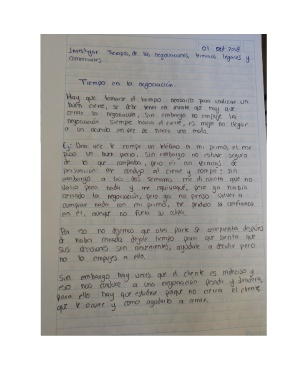 01 oct 2018
Investigar: Tiempo de las negociaciones, términos legales y
comerciales.
Tiempo en la negociación.
Hay que tomarse el tiempo necesario para realizar un
buen cierre, se debe tener en mente que hay que
cerrar la negociación. Sin embargo no empuje la
negociación siempre hacia el cierre, es mejor no llegar
a un acuerdo en vez de hacer uno malo.
Ej: Una vez le compre un teléfono a mi primo, el me
puso un buen precio, sin embargo no estaba segura
de lo que compraba, pero en
presión me condujo al cierre y compre; sin
embargo a las dos semanas me di cuenta que no
valía para nada y me equivoqué, pero ya había
cerrado la negociación, pero ya no pienso volver a
comprar nada con mi primo, he perdido la confianza
en él, aunque no fuera su culpa.
Por eso no dejemos que otra parte se arrepienta después
de haber cerrado, dele tiempo para que sienta que
sus decisiones son convenientes, ayúdale a decidir pero
no lo empujes a ello.
Sin embargo hay veces que el cliente es indeciso y
eso nos conduce a una negociación pesada y duradera,
para ello hay que estudiar porque no cierra el cliente,
que le ocurre y como ayudarlo a cerrar.